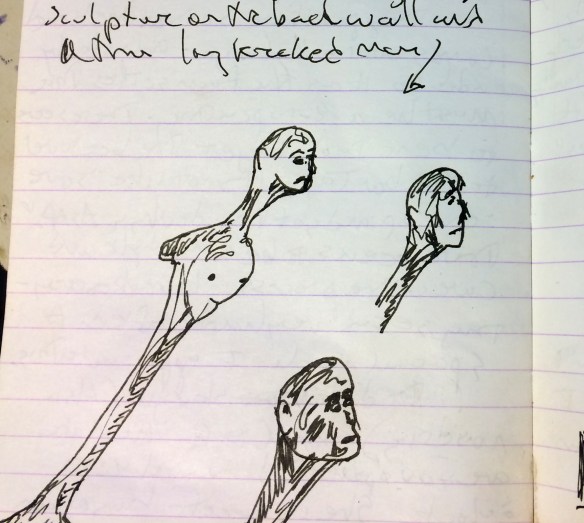 sculpture on the back wall with
a thin long necked man